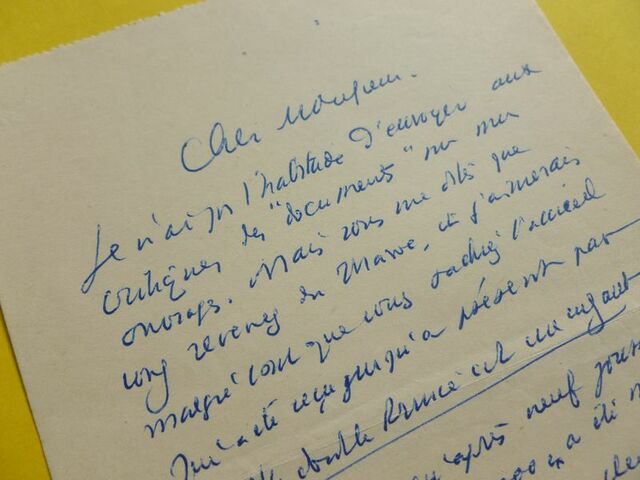 Cher Monsieur.
Je n'ai pas l'habitude d'envoyer aux
critiques des "documents" sur mes
ouvrages. Mais vous me dites que
vous revenez du Maroc, et j'aimerais
malgré tout que vous sachiez l'accueil
qui a été reçu jusqu'à présent par
double est un enfant
après neuf jours
a été